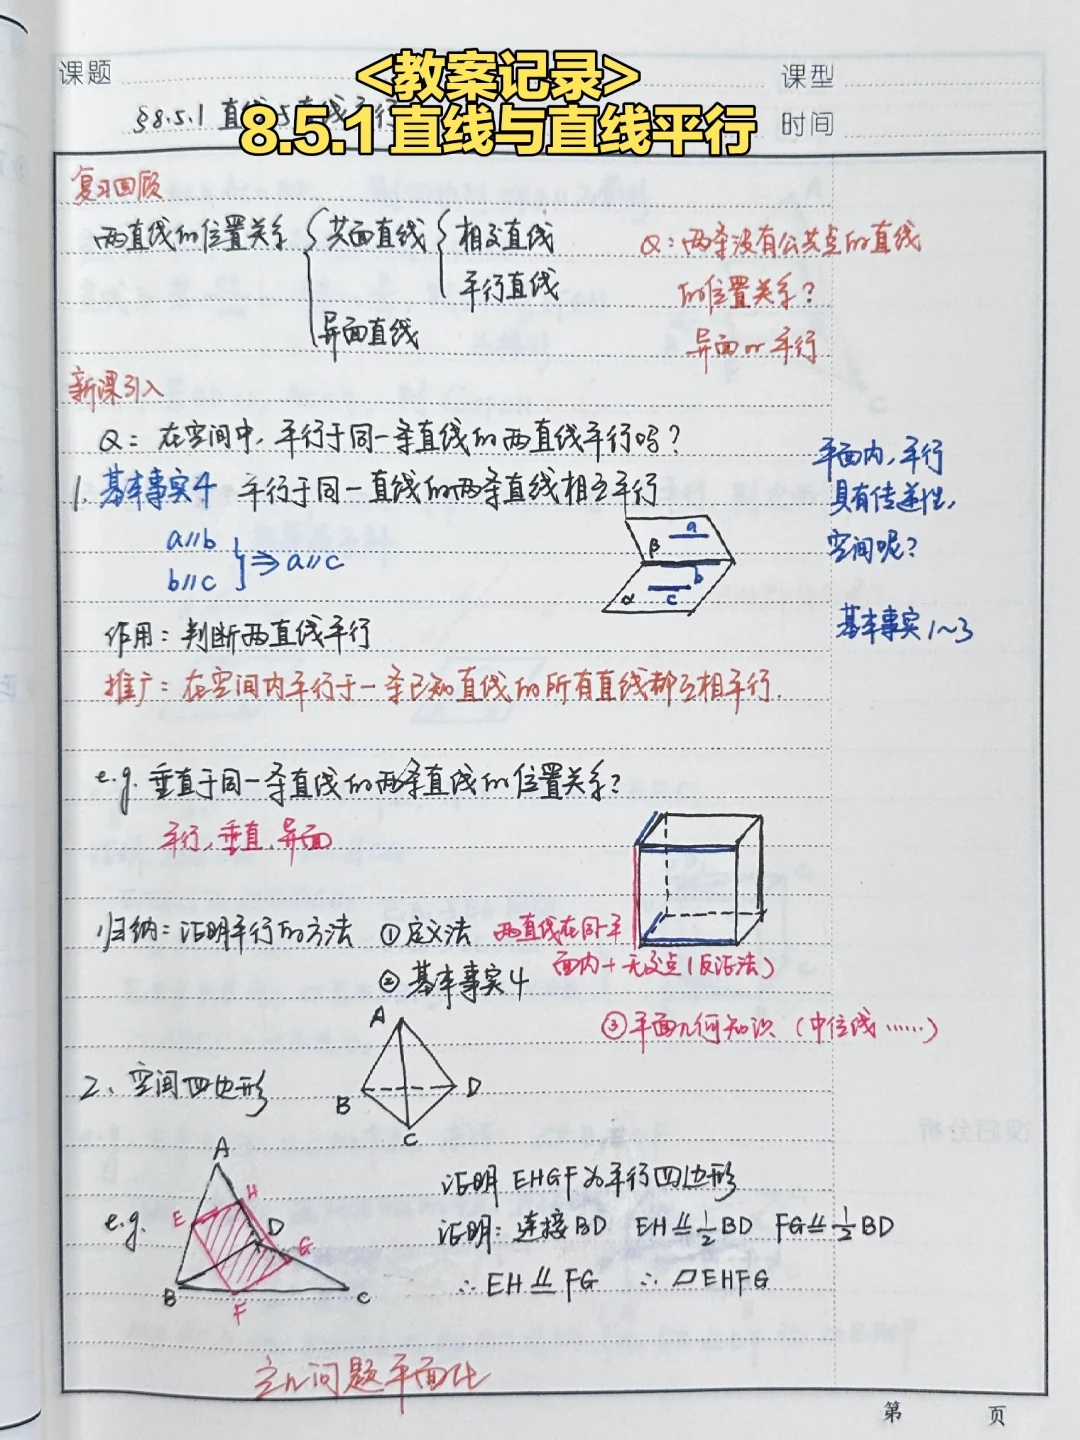 <教案记录>
8.5.1直线与直线平行
课题
§8.5.1 直线与直线平行
课型
时间
复习回顾
两直线的位置关系 共面直线 相交直线
平行直线
异面直线
Q：两条没有公共点的直线
的位置关系？
异面or平行
新课引入
Q：在空间中，平行于同一条直线的两直线平行吗？
平面内，平行
具有传递性，
空间呢？
基本事实1~3
1. 基本事实4 平行于同一直线的两条直线相互平行
a//b
b//c
⇒ a//c
β a
b
α c
作用：判断两直线平行
推广：在空间内平行于一条已知直线的所有直线都互相平行.
e.g. 垂直于同一条直线的两条直线的位置关系？
平行，垂直，异面
归纳：证明平行的方法 ①定义法 两直线在同一平
面内+无交点(反证法)
②基本事实4
③平面几何知识（中位线……）
2、空间四边形
A
B D
C
e.g.
A
E H
D
G
B F C
证明 EHGF为平行四边形
证明：连接BD EH⫫½BD FG⫫½BD
∴EH⫫FG ∴▱EHFG
立几问题平面化
第 页